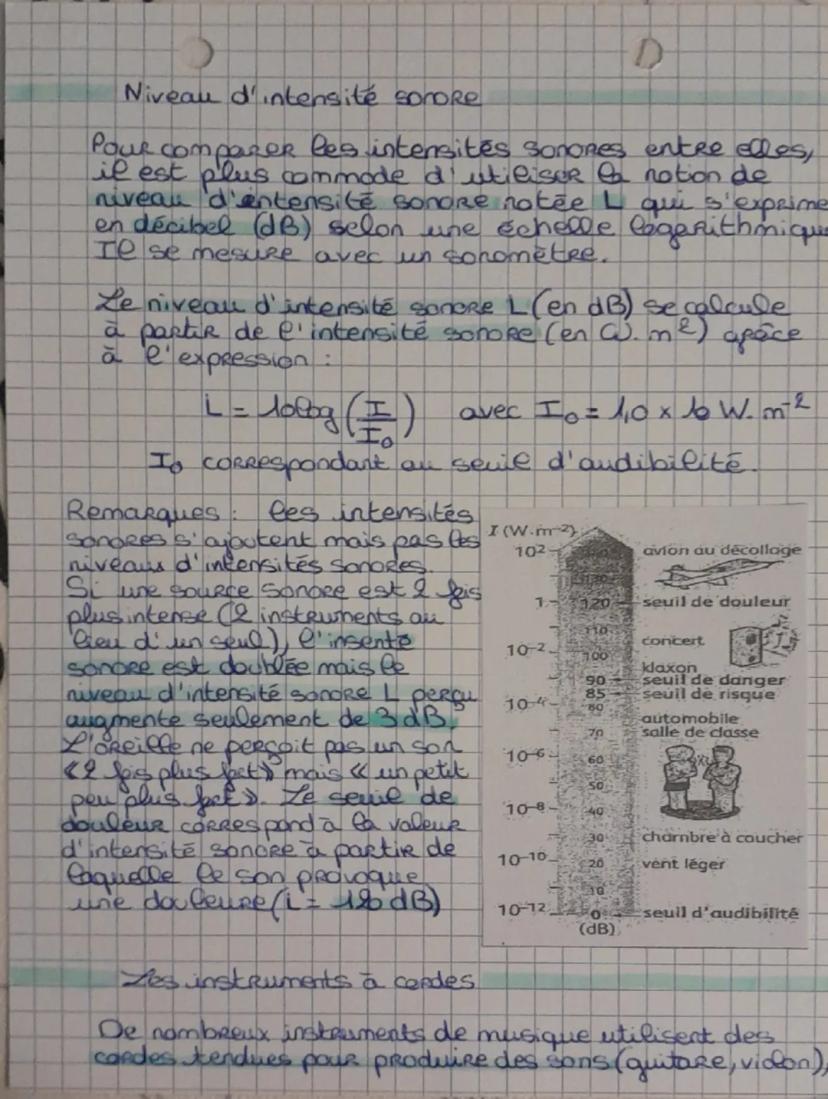 Niveau d'intensité sonore
Pour comparer les intensités sonores entre elles,
il est plus commode d'utiliser la notion de
niveau d'intensité sonore notée L qui s'exprime
en décibel (dB) selon une échelle logarithmique
Il se mesure avec un sonomètre.
Le niveau d'intensité sonore L (en dB) se calcule
à partir de l'intensité sonore (en W.m²) grâce
à l'expression :
L = 10log (I/I₀) avec I₀ = 1,0 x 10 W.m⁻²
I₀ correspondant au seuil d'audibilité.
Remarques : les intensités
sonores s'ajoutent mais pas les
niveaux d'intensités sonores.
Si une source sonore est 2 fois
plus intense (2 instruments au
lieu d'un seul), l'insente
sonore est doublée mais le
niveau d'intensité sonore L perçu
augmente seulement de 3 dB.
L'oreille ne perçoit pas un son
« 2 fois plus fort » mais « un petit
peu plus fort ». Le seuil de
douleur correspond à la valeur
d'intensité sonore à partir de
laquelle le son provoque
une douleure (L = 120 dB)
I (W·m⁻²)
10² avion au décollage
1 120 seuil de douleur
110
concert
10⁻² 100
klaxon
90 seuil de danger
85 seuil de risque
10⁻⁴ 80
automobile
70 salle de classe
10⁻⁶ 60
50
10⁻⁸ 40
30 chambre à coucher
10⁻¹⁰ 20 vent léger
10
10⁻¹² 0 seuil d'audibilité
(dB)
Les instruments à cordes
De nombreux instruments de musique utilisent des
cordes tendues pour produire des sons (guitare, violon),